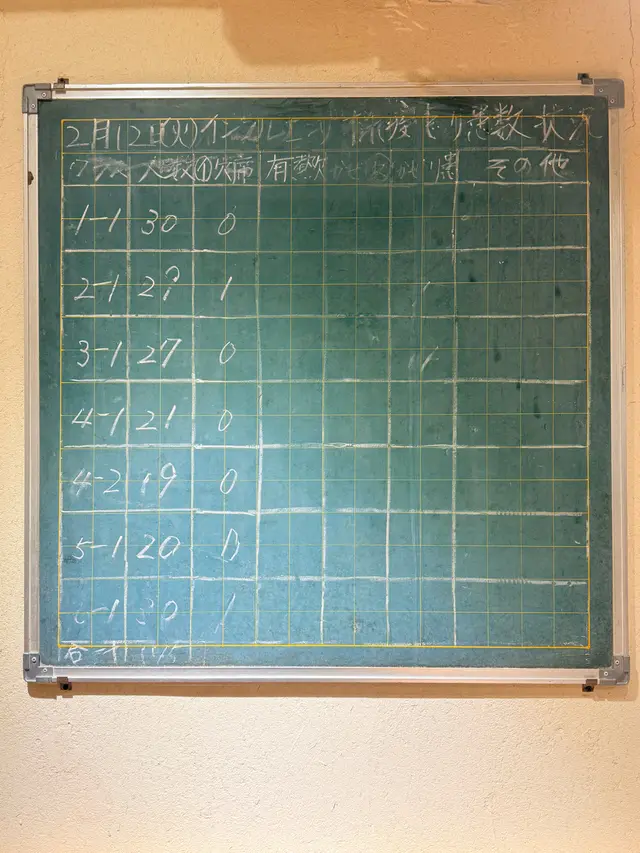 2月12日(火)インフルエンザ 患数状況
クラス 人数 欠席 有熱 かぜ かぜ り患 その他
1-1 30 0
2-1 2? 1
3-1 27 0
4-1 21 0
4-2 19 0
5-1 20 0
-1 1
合計